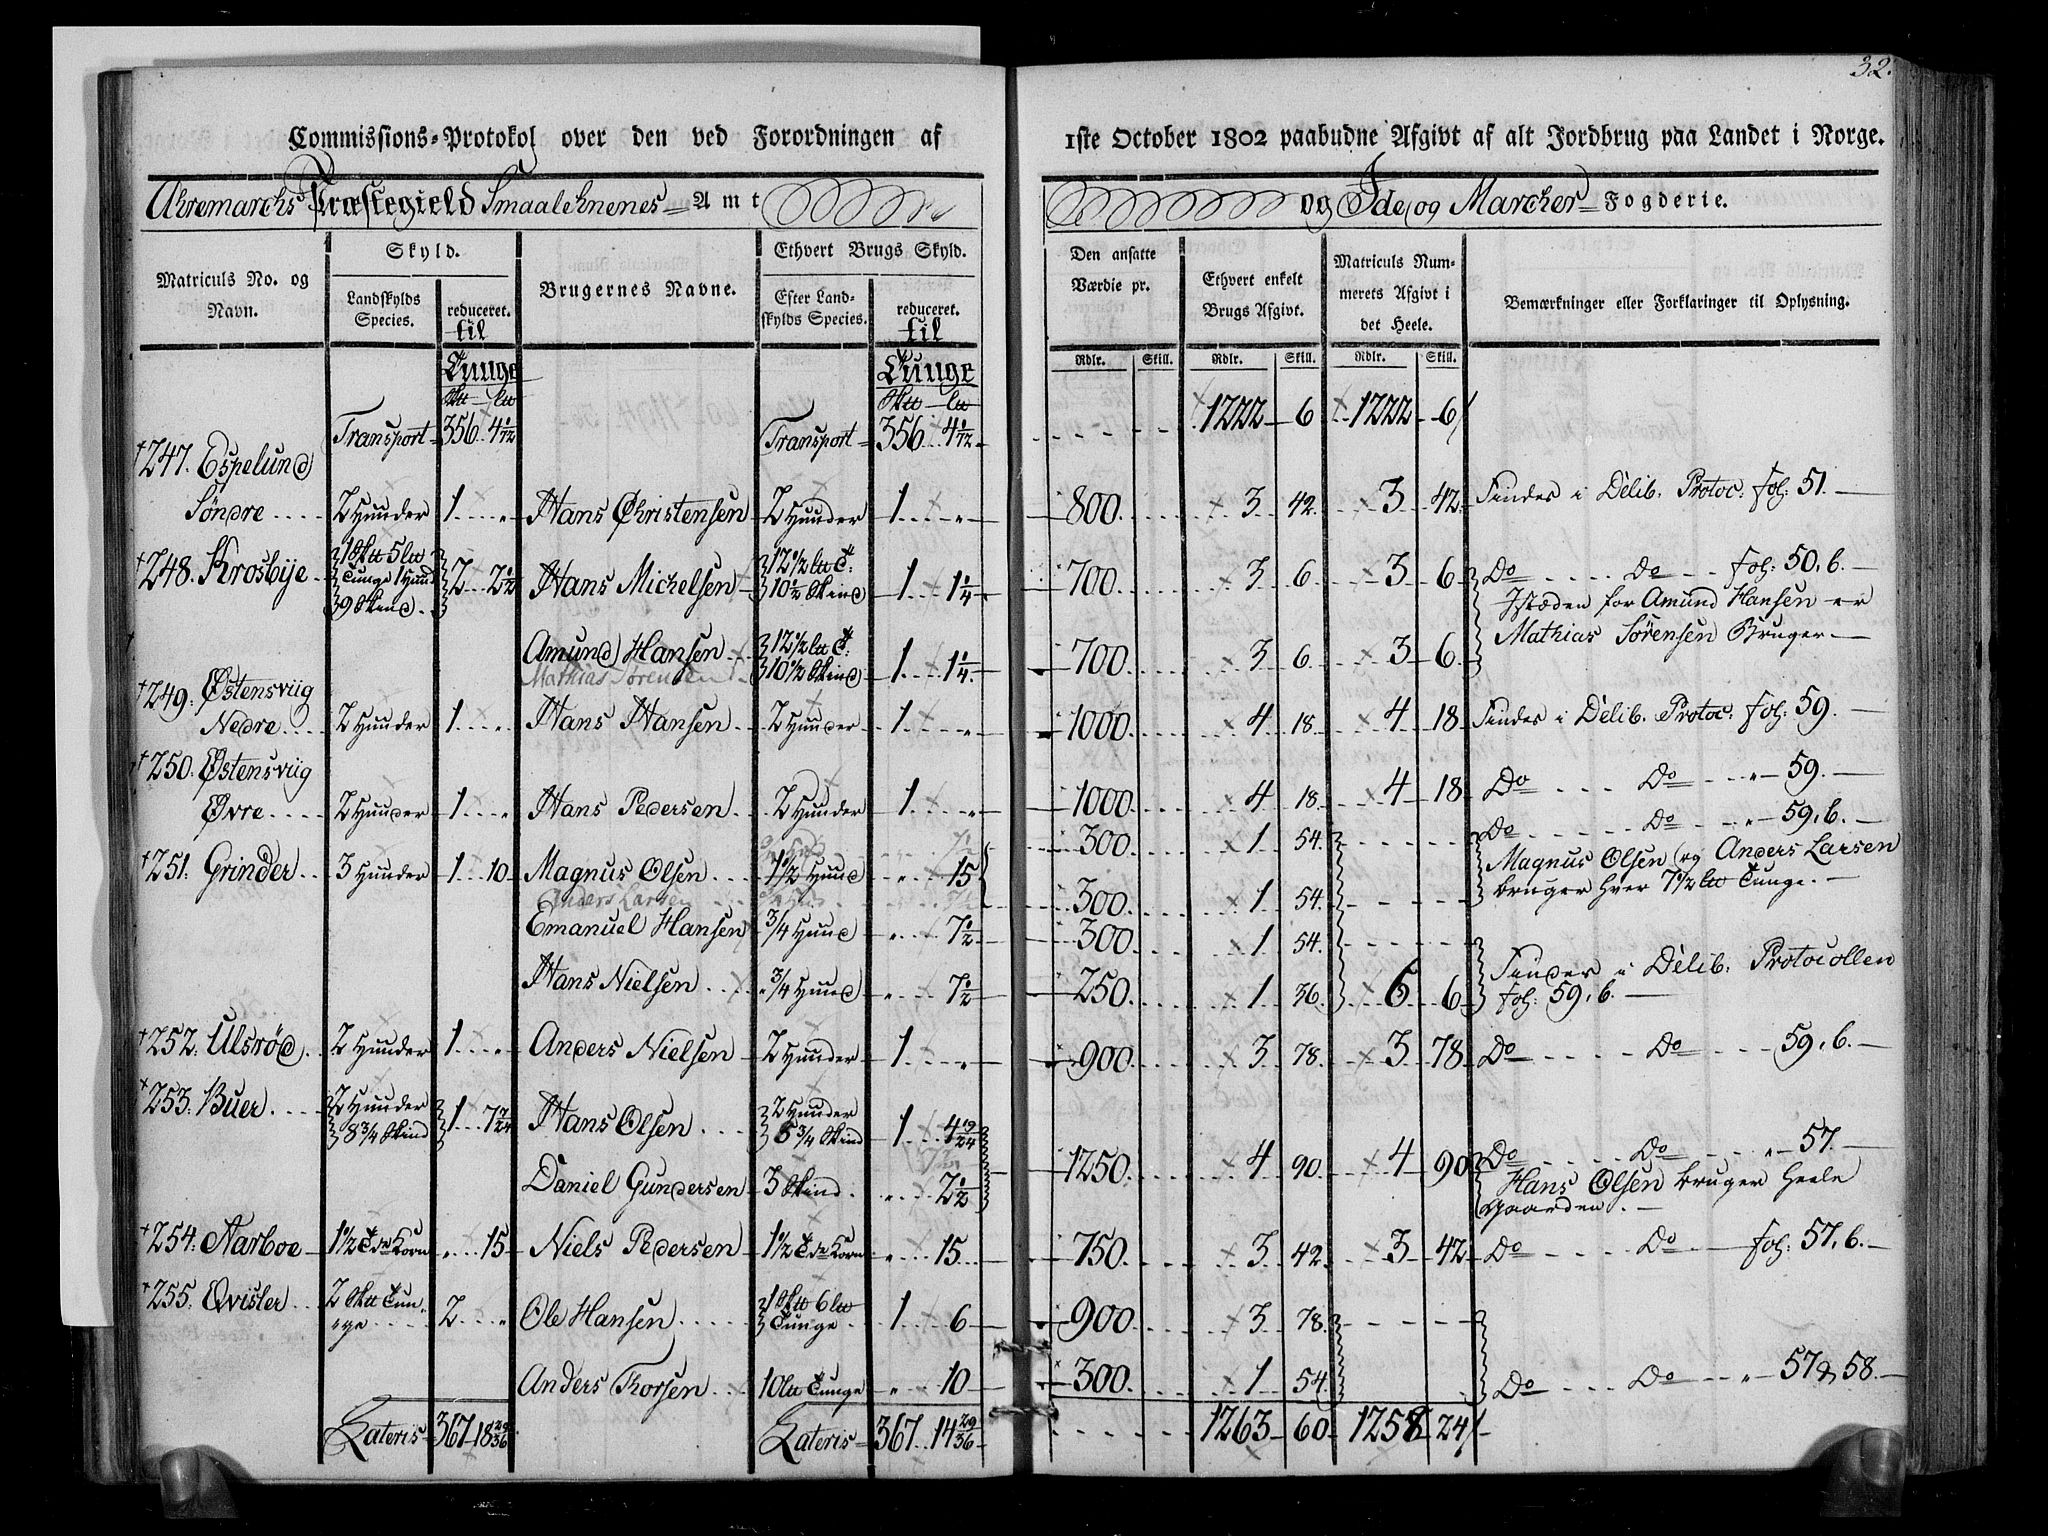 32.
Commissions-Protokol over den ved Forordningen af 1ste October 1802 paabudne Afgivt af alt Jordbrug paa Landet i Norge.
Ahremarchs Præstegield Smaalehnenes Amt og Ide og Marcker Fogderie.
Matriculs No. og Navn. | Skyld. Landskylds Species. | reduceret. til Tunge | Brugernes Navne. | Ethvert Brugs Skyld. Efter Landskylds Species. | reduceret. til Tunge | Den ansatte Værdie pr. Rdlr. Skill. | Ethvert enkelt Brugs Afgivt. Rdlr. Skill. | Matriculs Nummerets Afgivt i det Heele. Rdlr. Skill. | Bemærkninger eller Forklaringer til Oplysning.
Transport 356 4 1/12 | Transport 356 4 1/12 | 1222 6 | 1222 6
247. Espelund
Søndre | 2 Hunder | 1 " | Hans Christensen | 2 Hunder | 1 " | 800 | 3 42 | 3 42 | Findes i Delib. Protoc: fol: 51.
248. Krosbye | 1 Sktt 5 ltt Tunge 1 Hund 9 Skind | 2 2 1/2 | Hans Michelsen | 12 1/2 ltt T: 10 1/2 Skind | 1 1 1/4 | 700 | 3 6 | 3 6 | Do Do fol: 50, b.
Istæden for Amund Hansen er
Mathias Sørensen Bruger
Amund Hansen | 12 1/2 ltt T: 10 1/2 Skind | 1 1 1/4 | 700 | 3 6 | 3 6
Mathias Sørensen
249. Østensviig
Nedre | 2 Hunder | 1 " | Hans Hansen | 2 Hunder | 1 " | 1000 | 4 18 | 4 18 | Findes i Delib. Protoc: fol: 59.
250. Østensviig
Øvre | 2 Hunder | 1 " | Hans Pedersen | 2 Hunder | 1 " | 1000 | 4 18 | 4 18 | Do Do " 59.
251. Grinder | 3 Hunder | 1 10 | Magnus Olsen | 1 1/2 Hund | " 15 | 300 | 1 54 | Do Do " 59, b.
Magnus Olsen og Anders Larsen
bruger hver 7 1/2 ltt Tunge.
Anders Larsen | 300 | 1 54
Emanuel Hansen | 3/4 Hund | " 7 1/2 | 300 | 1 54
Hans Nielsen | 3/4 Hund | " 7 1/2 | 250 | 1 36 | 6 6 | Findes i Delib: Protocollen
fol: 59, b.
252. Ulsrød | 2 Hunder | 1 " | Anders Nielsen | 2 Hunder | 1 " | 900 | 3 78 | 3 78 | Do Do 59, b.
253. Buer | 2 Hunder 8 3/4 Skind | 1 7 7/24 | Hans Olsen | 2 Hunder 5 3/4 Skind | 1 4 19/24 | 1250 | 4 90 | 4 90 | Do Do " 57.
Hans Olsen bruger heele
Gaarden.
Daniel Gundersen | 3 Skind | " 2 1/2
254. Aarboe | 1 1/2 Tde Korn | " 15 | Niels Pedersen | 1 1/2 Tde Korn | " 15 | 750 | 3 42 | 3 42 | Do Do fol: 57, b.
255. Qvisler | 2 Sktt Tunge | 2 " | Ole Hansen | 1 Sktt 6 ltt Tunge | 1 6 | 900 | 3 78
Anders Torsen | 10 ltt Tunge | " 10 | 300 | 1 54 | Do Do " 57 & 58.
Lateris 367 18 29/36 | Lateris 367 14 29/36 | 1263 60 | 1258 24